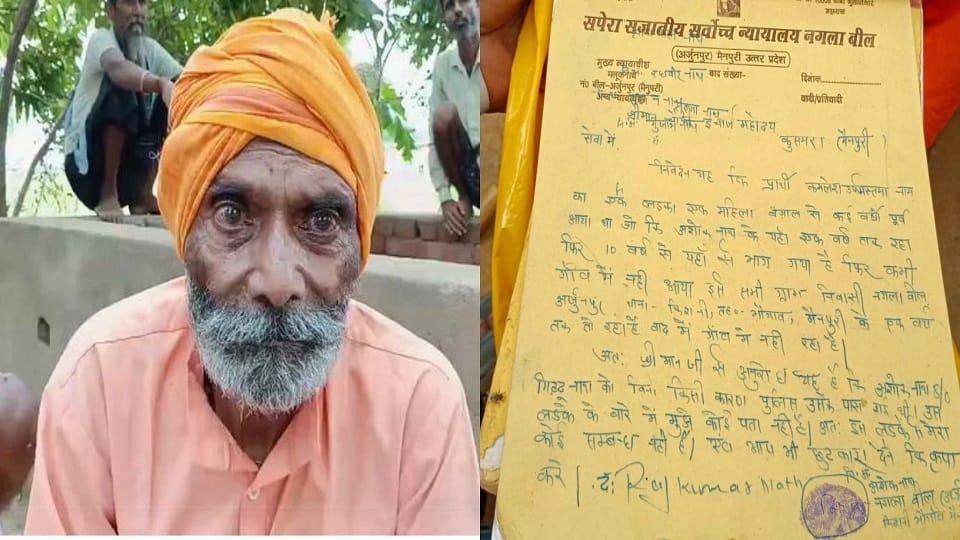 सपेरा सजातीय सर्वोच्च न्यायालय नगला बील
(अर्जुनपुर) मैनपुरी उत्तर प्रदेश
मुख्य न्यायाधीश
वाद संख्या-
दिनांक
नं० बील-अर्जुनपुर (मैनपुरी)
वादी/प्रतिवादी
इंचार्ज महोदय
सेवा में
कुसमरा (मैनपुरी)
निवेदन यह कि प्रार्थी कमलेश नाम
का एक लडका एक महिला बंगाल से कई वर्षो पूर्व
आया था जो कि अशोक नाथ के यहाँ एक वर्ष तक रहा
फिर 10 वर्ष से यहाँ से भाग गया है फिर कभी
गाँव में नही आया इसे सभी ग्राम निवासी नगला बील
अर्जुनपुर थाना- किशनी, तह० भोगांव, मैनपुरी के एक वर्ष
तक तो रहा है बाद में गाँव मे नही रहा है।
अतः श्री मान जी से अनुरोध यह है कि अशोक नाथ S/O
नाथ को बिना किसी कारण पुलिस उनके पास गई थी। इस
लडके के बारे में मुझे कोई पता नहीं है। अतः इस लडके से मेरा
कोई सम्बन्ध नही है। छुटकारा देने कि कृपा
करे। द: Raj Kumar Nath
अशोक नाथ
नगला बील